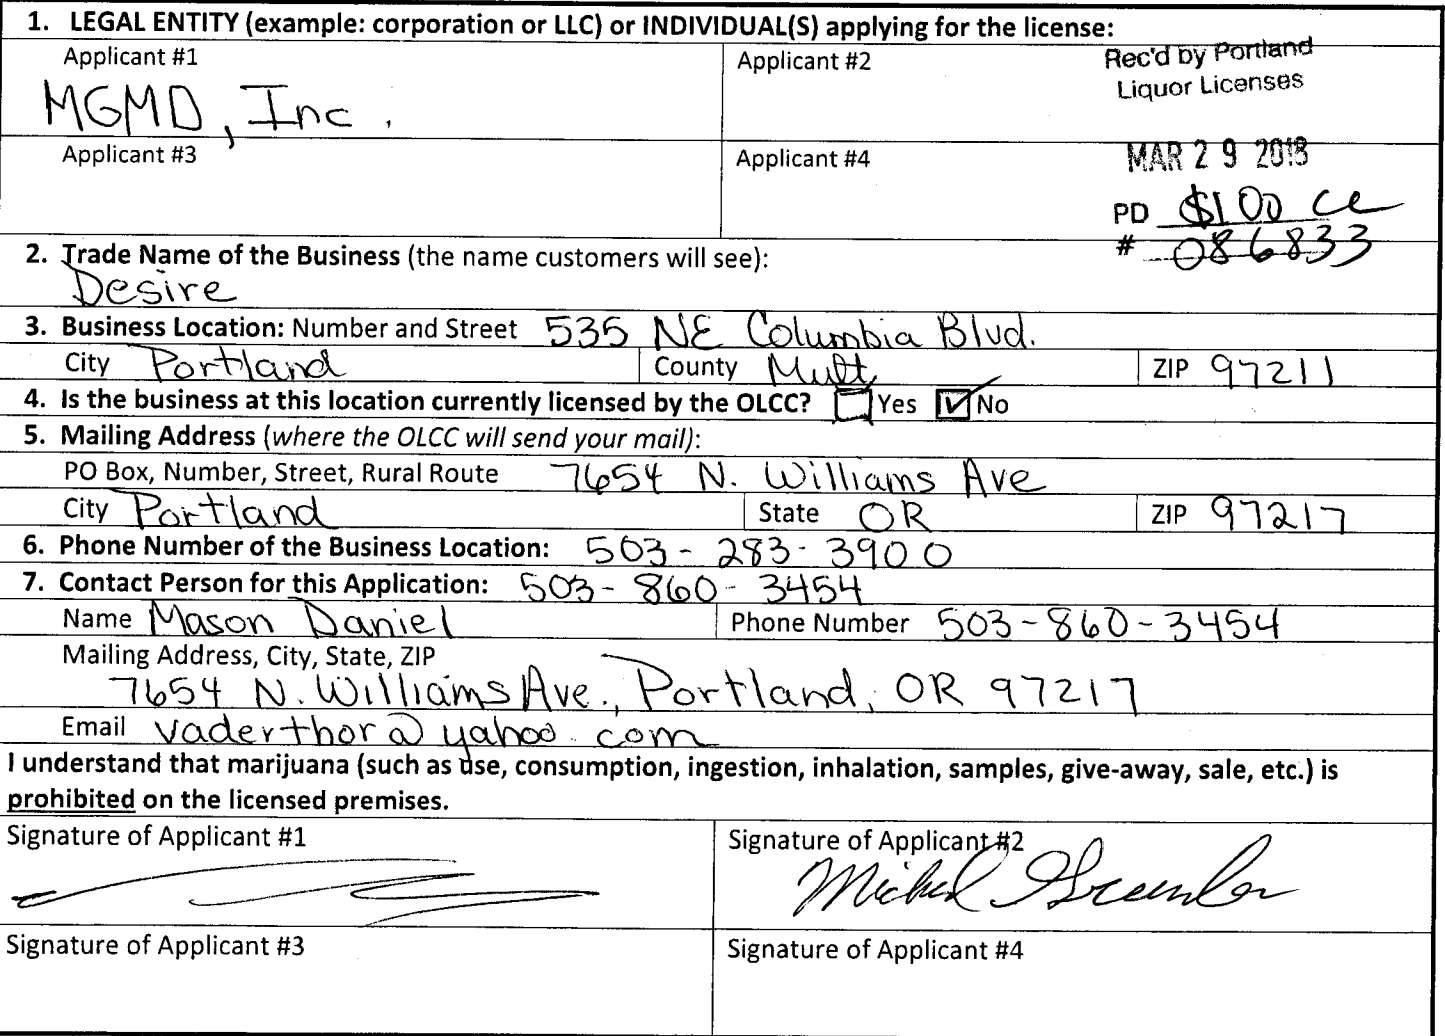 1. LEGAL ENTITY (example: corporation or LLC) or INDIVIDUAL(S) applying for the license:
Applicant #1
MGMD, Inc.
Applicant #2
Rec'd by Portland
Liquor Licenses
Applicant #3
Applicant #4
MAR 29 2018
PD $100 cc
# 086833
2. Trade Name of the Business (the name customers will see):
Desire
3. Business Location: Number and Street 535 NE Columbia Blvd.
City Portland County Mult. ZIP 97211
4. Is the business at this location currently licensed by the OLCC? Yes No
5. Mailing Address (where the OLCC will send your mail):
PO Box, Number, Street, Rural Route 7654 N. Williams Ave
City Portland State OR ZIP 97217
6. Phone Number of the Business Location: 503-283-3900
7. Contact Person for this Application: 503-860-3454
Name Mason Daniel Phone Number 503-860-3454
Mailing Address, City, State, ZIP
7654 N. Williams Ave., Portland, OR 97217
Email vaderthor@yahoo.com
I understand that marijuana (such as use, consumption, ingestion, inhalation, samples, give-away, sale, etc.) is
prohibited on the licensed premises.
Signature of Applicant #1
Signature of Applicant #2
Signature of Applicant #3
Signature of Applicant #4